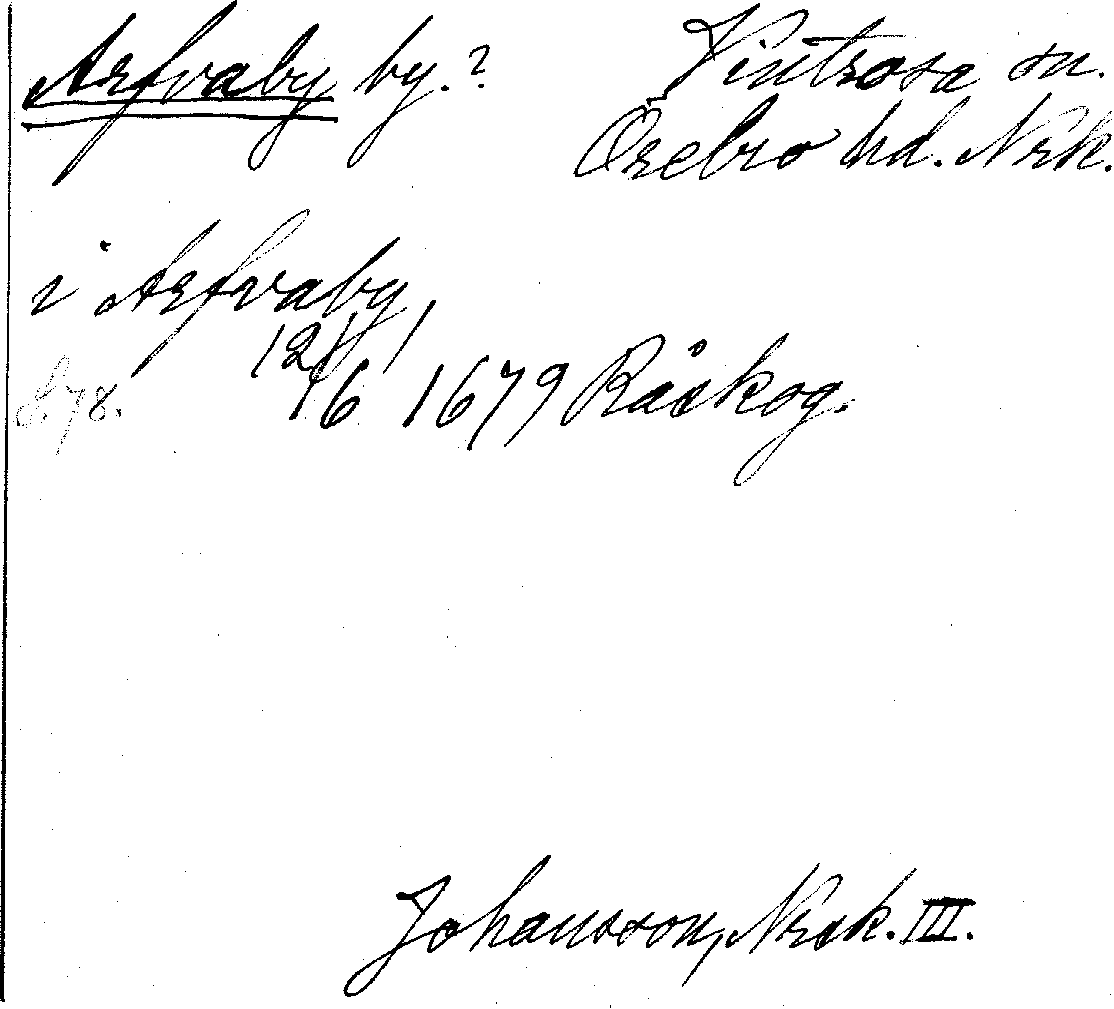 Arfvaby by.? Vintrosa sn.
Örebro hd. Nrk.
i Arfvaby,
12/6 1679 Råskog.
S. 78.
Johansson, Nrk. III.